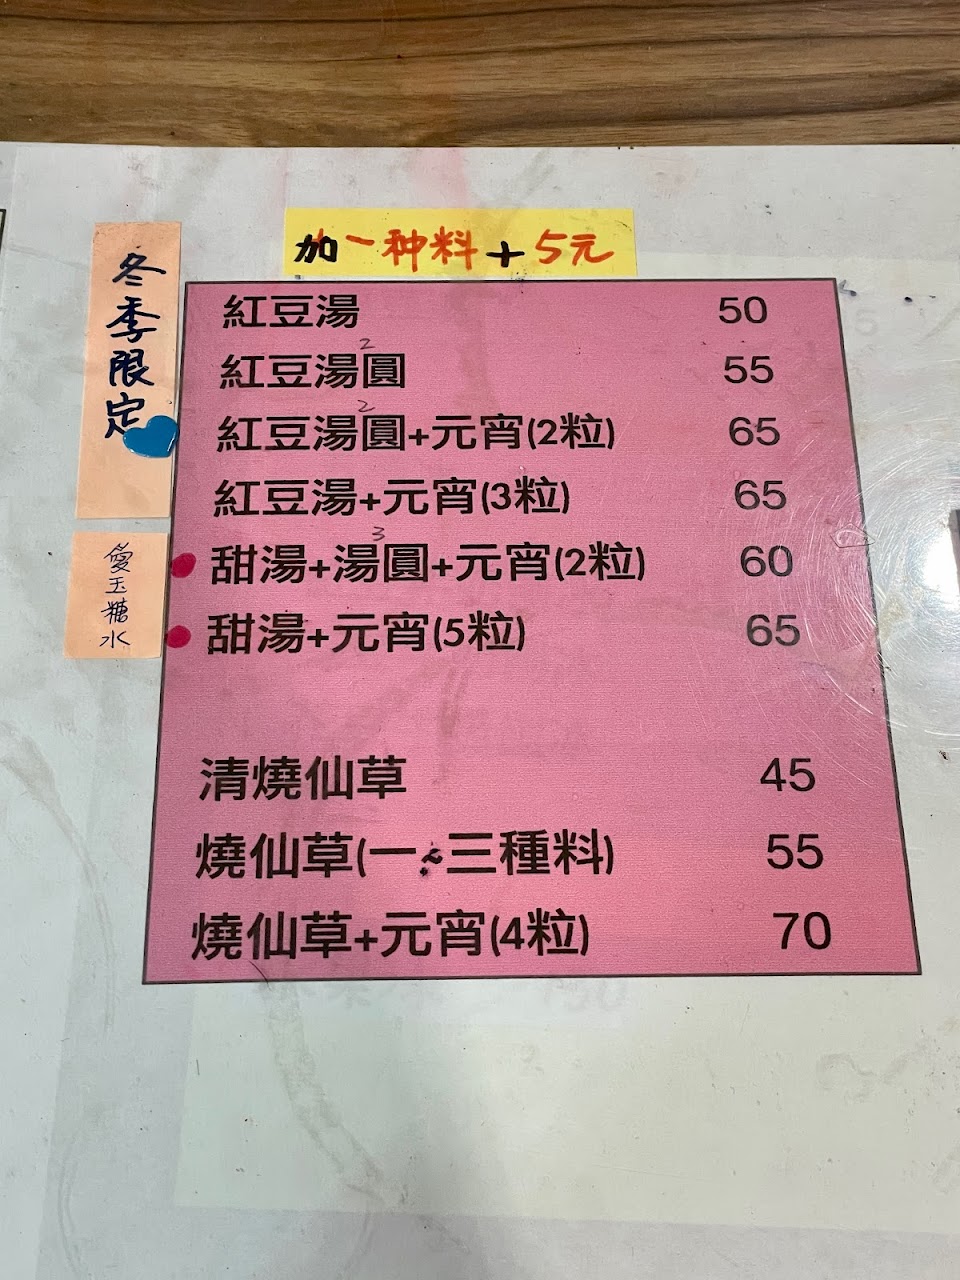 加一种料+5元
冬季限定
紅豆湯 50
2
紅豆湯圓 55
2
紅豆湯圓+元宵(2粒) 65
紅豆湯+元宵(3粒) 65
3
甜湯+湯圓+元宵(2粒) 60
甜湯+元宵(5粒) 65
愛玉糖水
清燒仙草 45
燒仙草(一~三種料) 55
燒仙草+元宵(4粒) 70